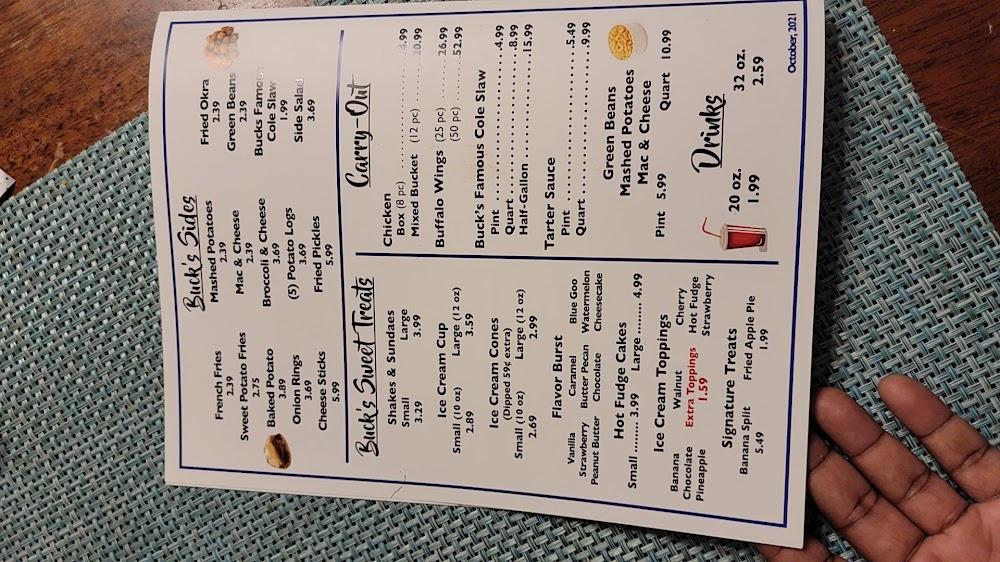 Buck's Sides
French Fries
2.39
Sweet Potato Fries
2.75
Baked Potato
3.89
Onion Rings
3.69
Cheese Sticks
5.99
Mashed Potatoes
2.39
Mac & Cheese
2.39
Broccoli & Cheese
3.69
(5) Potato Logs
3.69
Fried Pickles
5.99
Fried Okra
2.39
Green Beans
2.39
Bucks Famous
Cole Slaw
1.99
Side Salad
3.69
Buck's Sweet Treats
Shakes & Sundaes
Small Large
3.29 3.99
Ice Cream Cup
Small (10 oz) Large (12 oz)
2.89 3.59
Ice Cream Cones
(Dipped 59¢ extra)
Small (10 oz) Large (12 oz)
2.69 2.99
Flavor Burst
Vanilla Caramel Blue Goo
Strawberry Butter Pecan Watermelon
Peanut Butter Chocolate Cheesecake
Hot Fudge Cakes
Small ......... 3.99 Large ......... 4.99
Ice Cream Toppings
Banana Walnut Cherry
Chocolate Extra Toppings Hot Fudge
Pineapple 1.59 Strawberry
Signature Treats
Banana Split Fried Apple Pie
5.49 1.99
Carry-Out
Chicken
Box (8 pc) .................... 4.99
Mixed Bucket (12 pc) ........ 20.99
Buffalo Wings (25 pc) ....... 26.99
(50 pc) ....... 52.99
Buck's Famous Cole Slaw
Pint .......................... 4.99
Quart ......................... 8.99
Half-Gallon .................... 15.99
Tarter Sauce
Pint .......................... 5.49
Quart ......................... 9.99
Green Beans
Mashed Potatoes
Mac & Cheese
Pint 5.99 Quart 10.99
Drinks
20 oz. 32 oz.
1.99 2.59
October, 2021